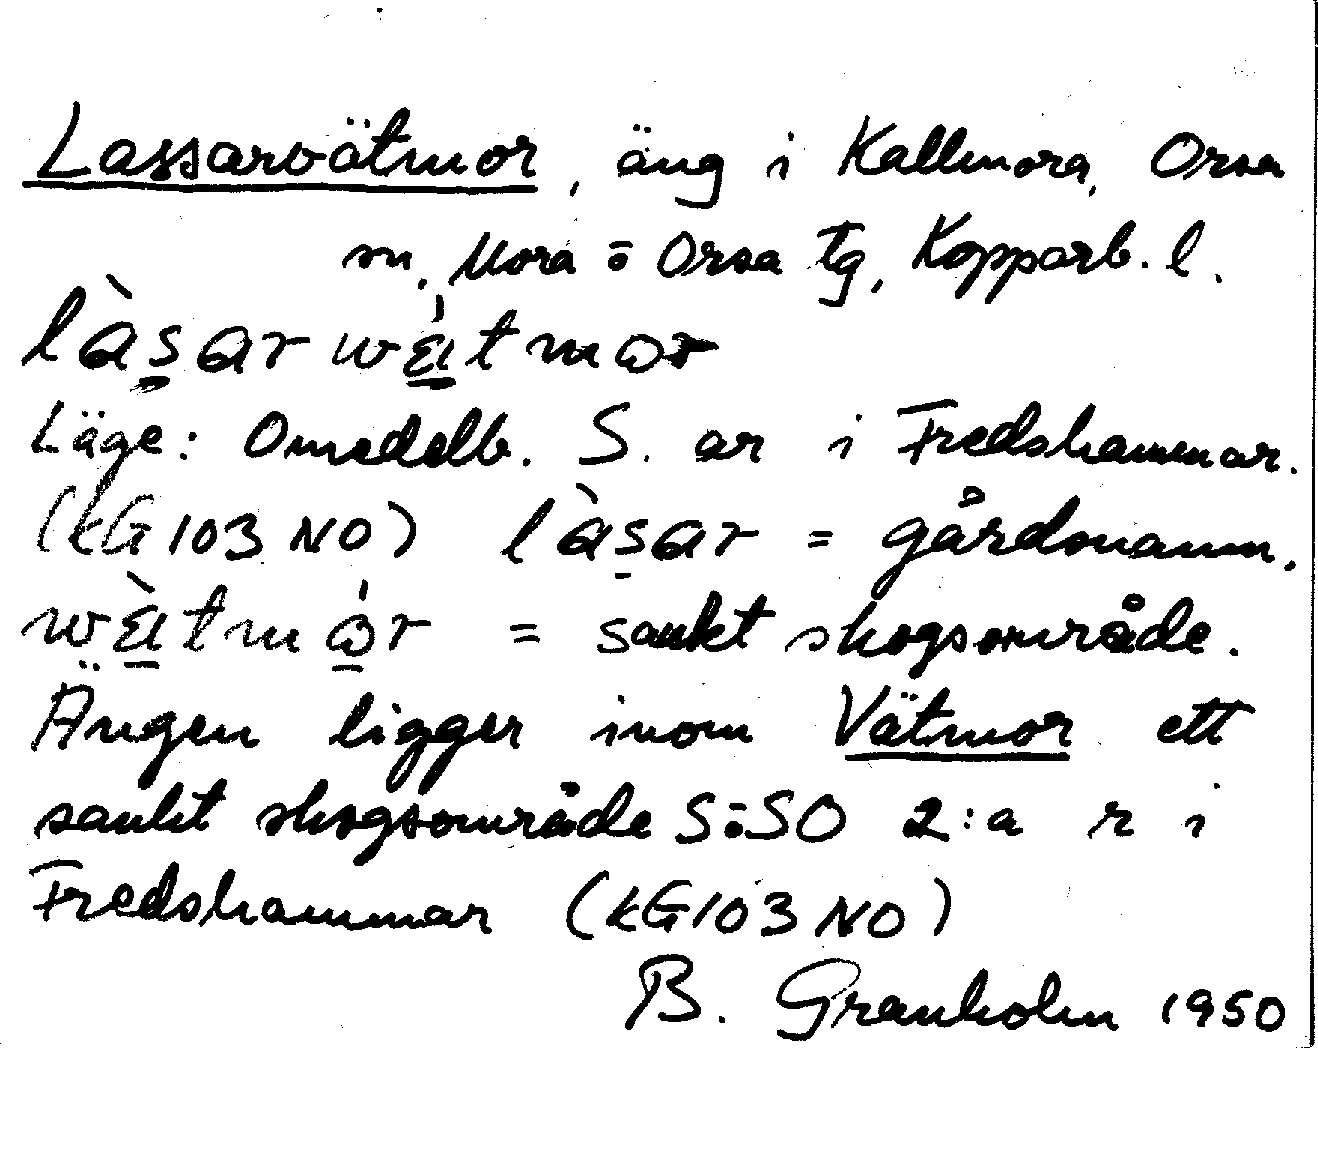 Lassarvätmor, äng i Kallmora, Orsa
sn, Mora o Orsa tg, Kopparb. l.
làsarwä̀tmor
Läge: Omedelb. S. ar i Fredshammar.
(kG103 NO) làsar = gårdsnamn.
wä̀tmór = sankt skogsområde.
Ängen ligger inom Vätmor ett
sankt skogsområde S o SO 2:a r i
Fredshammar (kG103 NO)
B. Granholm 1950